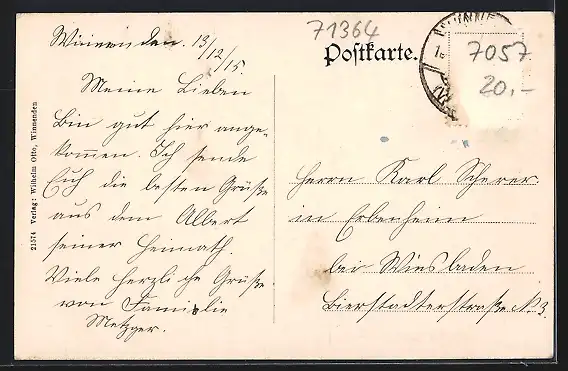 71364
Postkarte.
WINNE
7057
20,-
Winnenden. 13/12/15.
Meine Lieben
Bin gut hier ange-
kommen. Ich sende
Euch die besten Grüße
aus dem Albert
seiner Heimath.
Viele herzliche Grüße.
von Familie
Metzger.
Herrn Karl Scherer
in Erbenheim
bei Wiesbaden
Bierstadterstraße N. 3.
21574 Verlag: Wilhelm Otto, Winnenden